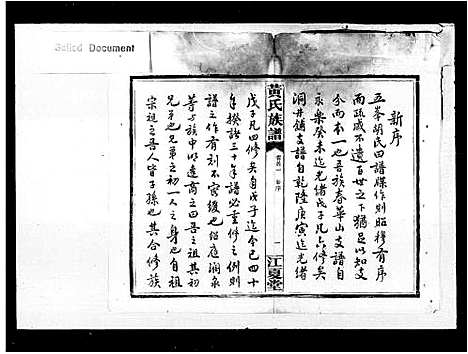 Salled Document
新序
五峯胡氏曰譜牒作則昭穆有序
而疏戚不遺百世之下猶足以知支
分而本一也吾族春華山支譜自
永樂癸未迄光緒戊子凡六修矣
洞井鋪支譜自乾隆庚寅迄光緒
黃氏族譜
卷首一 新序
一
江夏堂
戊子凡四修矣自戊子迄今已四十
年揆諸三十年譜必重修之例則
譜之作有不容緩也紹庭潤泉
等與族中年 以譜事為
兄弟也兄弟之初一人之身也自祖
宗祖之吾人皆子孫也其合修族